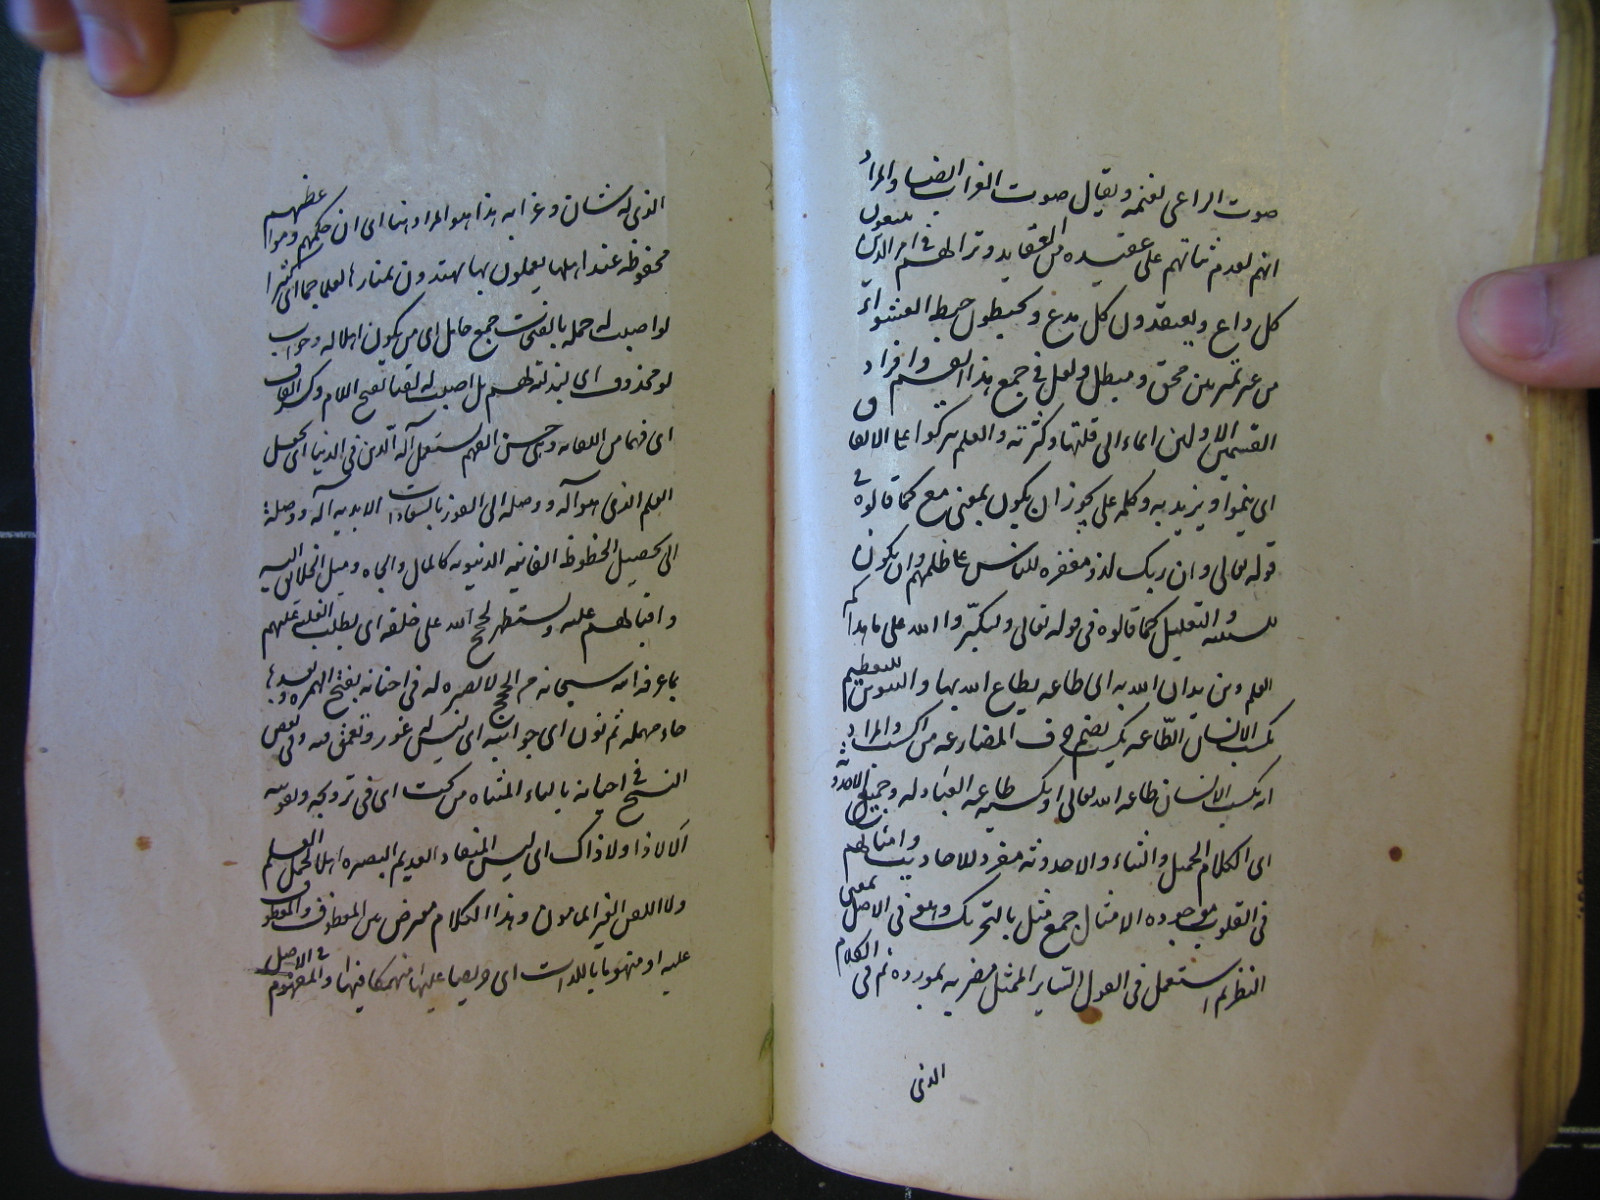 صوت الراعى بغنمه ويقال صوت الغراب ايضا والمراد
انهم لعدم ثباتهم على عقيده من العقايد وتزلزلهم فى امر الدين يتبعون
كل داع ويعتقدون كل مدع ويخبطون خبط العشواء
من غير تميز بين محق و مبطل ولعل فى جمع هذا القسم وافراد
القسمين الاولين ايماء الى قلتها وكثرته والعلم يزكوا على الانفاق
اى ينموا ويزيد به وكلمه على يجوز ان يكون بمعنى مع كما قالوه فى
قوله تعالى وان ربك لذو مغفره للناس على ظلمهم وان يكون
للسببيه والتعليل كما قالوه فى قوله تعالى ولتكبّروا الله على ما هداكم
العلم دين يدان الله به اى طاعه يطاع الله بها والتنوين للتعظيم
يكسب الانسان الطّاعه يكسب بضم حرف المضارعه من اكسب والمراد
انه يكسب الانسان طاعه الله تعالى او يكسبه طاعه العباد له وجميل الاحدوثه
اى الكلام الجميل والثناء والاحدوثه مفرد للاحاديث وامثالهم
فى القلوب موجوده الامثال جمع مثل بالتحريك وهو فى الاصل بمعنى
النظير ثم استعمل فى القول السّاير الممثل مضربه بمورده ثم فى الكلام
الذى
الذى له شان وغرابه هذا هو المراد هنا اى ان حكمهم ومواعظهم
محفوظه عند اهلها يعملون بها يهتدون بمنارها لعلما جما اى كثيرا
لو اصبت له حمله بالفتحات جمع حامل اى من يكون اهلا له وجواب
لو محذوف اى لبذلته لهم بل اصبت له لقنا بفتح اللام وكسر القاف
اى فهما من اللقانه وهى حسن الفهم يستعمل آله الدّين فى الدنيا اى يجعل
العلم الذى هو آله ووصله الى الفوز بالسعادات الابديه آله ووصله
الى تحصيل الحظوظ الفانيه الدنيويه كالمال والجاه وميل الخلائق اليه
واقبالهم عليه ويستظهر لحجج الله على خلقه اى يطلب الغلبه عليهم
بما عرفه الله سبحانه من الحجج لا بصيره له فى احنائه بفتح الهمزه وبعدها
حاء مهمله ثم نون اى جوانبه اى ليس له غور وتعمق فيه وفى بعض
النسخ فى احيائه بالياء المثناه من تحت اى فى ترويجه وتقويته
الا لا ذا ولا ذاك اى ليس المنقاد العديم البصيره اهلا لحمل العلم
ولا اللقن الغير المامون وهذا الكلام معترض بين المعطوف والمعطوف
عليه او منهوما باللذات اى حريصا عليها منهمكا فيها والمنهوم فى الاصل